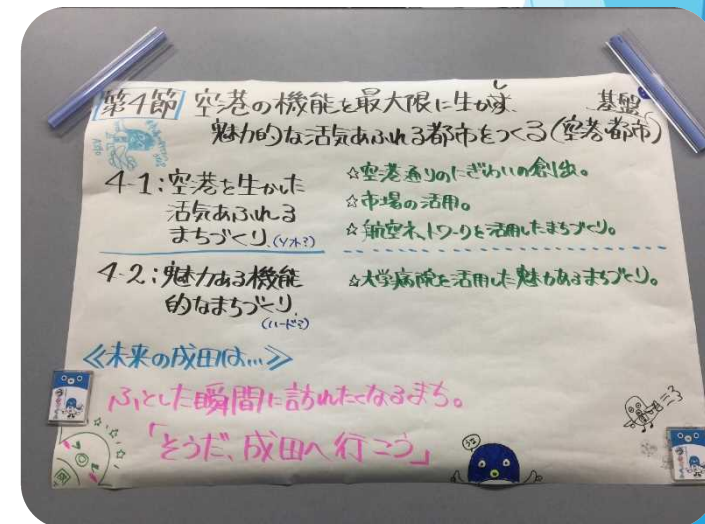 第4節 空港の機能を最大限に生かし
魅力的な活気あふれる都市をつくる(空港都市)
基盤
4-1:空港を生かした
活気あふれる
まちづくり.(ソフト?)
☆空港通りのにぎわいの創出。
☆市場の活用。
☆航空ネットワークを活用したまちづくり。
4-2:魅力ある機能
的なまちづくり.
(ハード?)
☆大学病院を活用した魅力あるまちづくり。
≪未来の成田は…≫
ふとした瞬間に訪れたくなるまち。
「そうだ、成田へ行こう」
うな